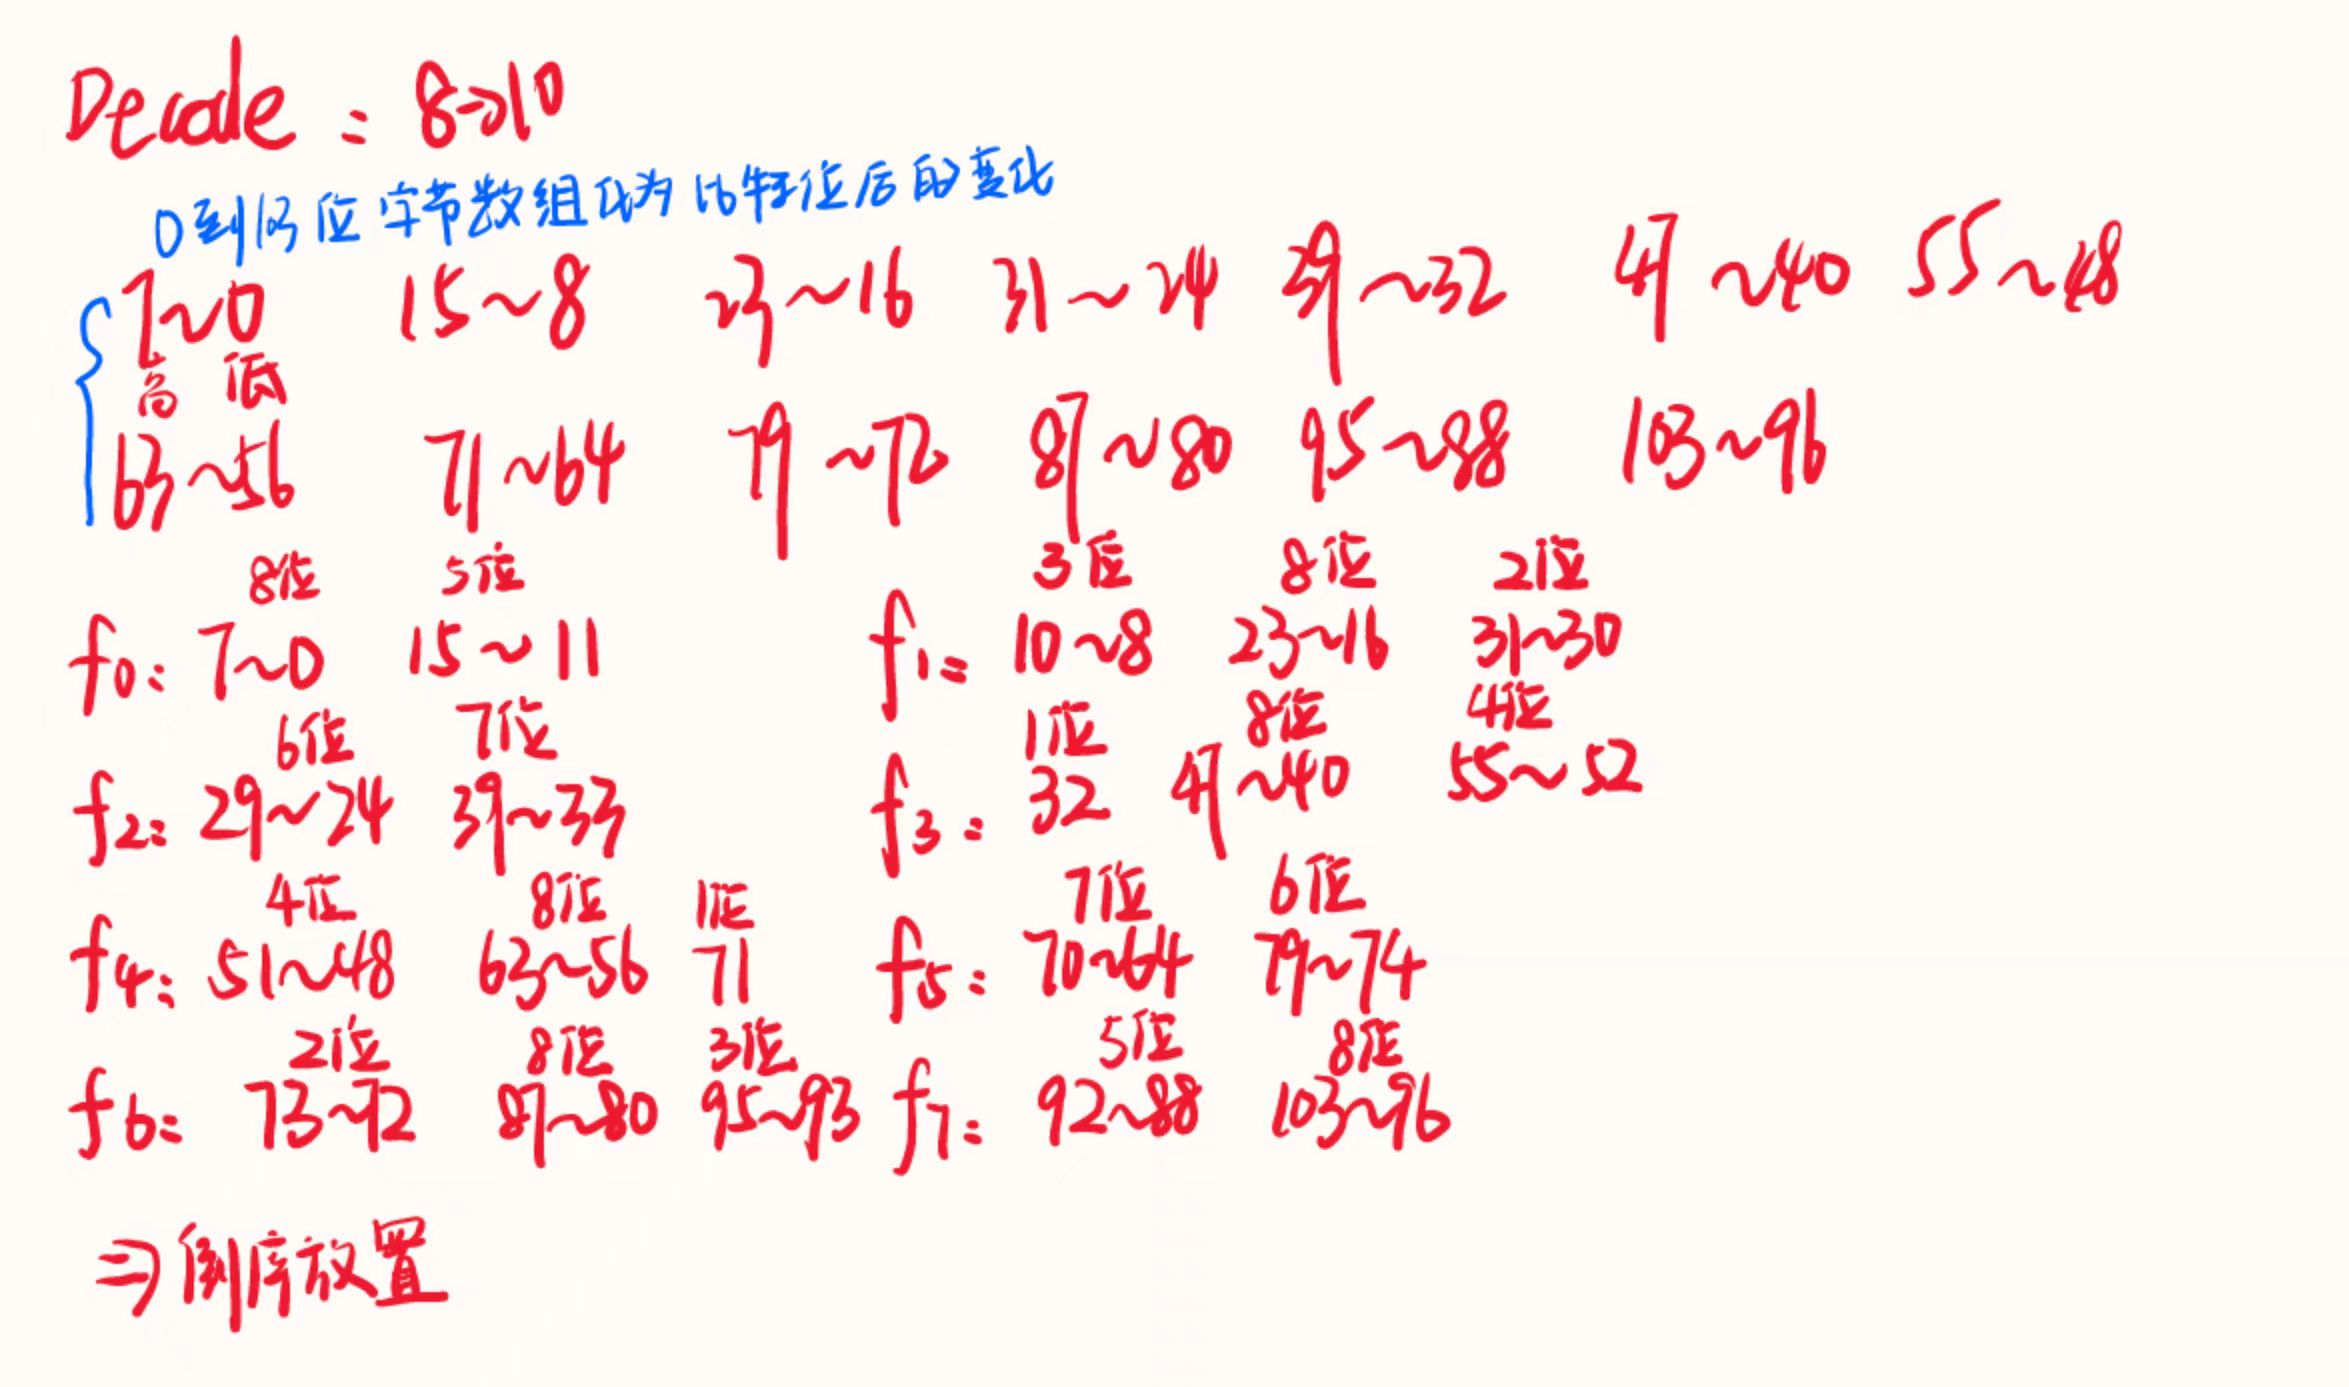 Decode : 8→10
0到103位字节数组化为比特位后的变化
7~0 15~8 23~16 31~24 39~32 47~40 55~48
高 低
63~56 71~64 79~72 87~80 95~88 103~96
8位 5位 3位 8位 2位
f0: 7~0 15~11 f1: 10~8 23~16 31~30
6位 7位 1位 8位 4位
f2: 29~24 39~33 f3: 32 47~40 55~52
4位 8位 1位 7位 6位
f4: 51~48 63~56 71 f5: 70~64 79~74
2位 8位 3位 5位 8位
f6: 73~72 87~80 95~93 f7: 92~88 103~96
⇒ 倒序放置